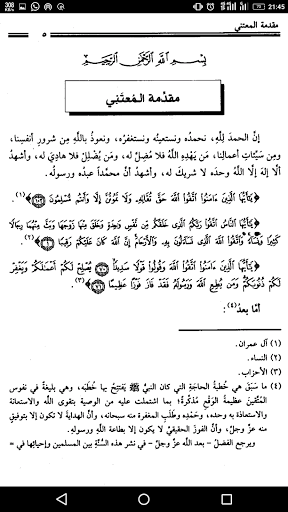 308 B/s
21:45
مقدمة المعتني
٥
بِسْمِ اللَّهِ الرَّحْمَنِ الرَّحِيمِ
مقدمة المعتني
إنَّ الحمدَ للهِ، نحمدُه ونستعينُه ونستغفرُه، ونعوذُ باللهِ مِن شرورِ أنفسِنا،
ومِن سيّئاتِ أعمالِنا، مَن يَهْدِهِ اللَّهُ فلا مُضِلَّ له، ومَن يُضْلِلْ فلا هاديَ له، وأشهدُ
ألَّا إلَهَ إلَّا اللَّهُ وحدَه لا شريكَ له، وأشهدُ أنَّ محمَّداً عبدُه ورسولُه.
﴿يَٰٓأَيُّهَا ٱلَّذِينَ ءَامَنُوا۟ ٱتَّقُوا۟ ٱللَّهَ حَقَّ تُقَاتِهِۦ وَلَا تَمُوتُنَّ إِلَّا وَأَنتُم مُّسْلِمُونَ ١٠٢﴾(١).
﴿يَٰٓأَيُّهَا ٱلنَّاسُ ٱتَّقُوا۟ رَبَّكُمُ ٱلَّذِى خَلَقَكُم مِّن نَّفْسٍ وَٰحِدَةٍ وَخَلَقَ مِنْهَا زَوْجَهَا وَبَثَّ مِنْهُمَا رِجَالًا
كَثِيرًا وَنِسَآءً ۚ وَٱتَّقُوا۟ ٱللَّهَ ٱلَّذِى تَسَآءَلُونَ بِهِۦ وَٱلْأَرْحَامَ ۚ إِنَّ ٱللَّهَ كَانَ عَلَيْكُمْ رَقِيبًا ١﴾(٢).
﴿يَٰٓأَيُّهَا ٱلَّذِينَ ءَامَنُوا۟ ٱتَّقُوا۟ ٱللَّهَ وَقُولُوا۟ قَوْلًا سَدِيدًا ٧٠ يُصْلِحْ لَكُمْ أَعْمَٰلَكُمْ وَيَغْفِرْ
لَكُمْ ذُنُوبَكُمْ ۗ وَمَن يُطِعِ ٱللَّهَ وَرَسُولَهُۥ فَقَدْ فَازَ فَوْزًا عَظِيمًا ٧١﴾(٣).
أمَّا بعدُ(٤):
(١) آل عمران.
(٢) النساء.
(٣) الأحزاب.
(٤) ما سَبَقَ هي خُطبةُ الحاجةِ التي كان النبيُّ ﷺ يَفتتِحُ بها خُطَبَه، وهي بليغةٌ في نفوسِ
المتَّقينَ عظيمةُ الوَقْعِ مذكِّرةٌ؛ بما اشتملت عليه من الوصيةِ بتقوى اللَّه، والاستعانةِ
والاستعاذةِ به وحدَه، وحمدِه، وطَلَبِ المغفرةِ منه سبحانه، وأنَّ الهدايةَ لا تكون إلا بتوفيقٍ
منه عزَّ وجلَّ، وأنَّ الفوزَ الحقيقيَّ لا يكون إلا بطاعةِ اللَّهِ ورسولِه.
ويرجع الفضلُ - بعد اللَّه عزَّ وجلَّ - في نشر هذه السُّنَّةِ بين المسلمين وإحيائِها في =